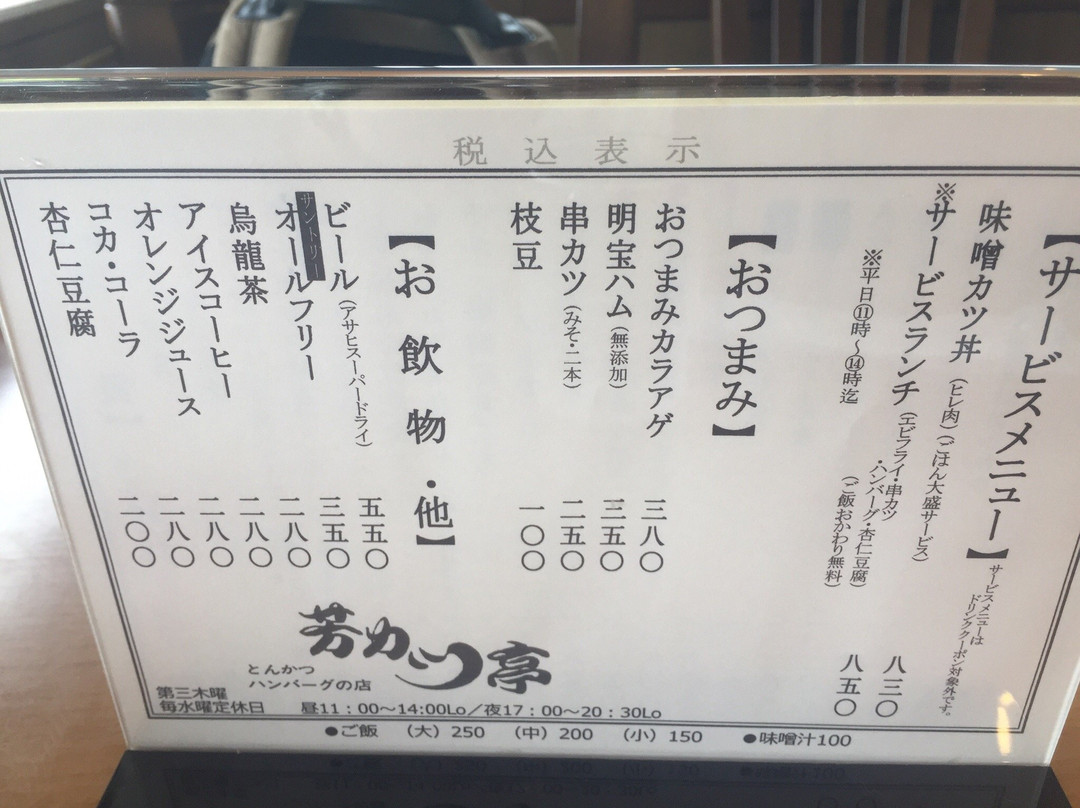 税込表示
【サービスメニュー】
サービスメニューは
ドリンククーポン対象外です。
味噌カツ丼（ヒレ肉）（ごはん大盛サービス） 八三〇
※サービスランチ（エビフライ・串カツ
・ハンバーグ・杏仁豆腐）
（ご飯おかわり無料） 八五〇
※平日⑪時～⑭時迄
【おつまみ】
おつまみカラアゲ 三八〇
明宝ハム（無添加） 三五〇
串カツ（みそ・二本） 二五〇
枝豆 一〇〇
【お飲物・他】
ビール（アサヒスーパードライ） 五五〇
サントリー
オールフリー 三五〇
烏龍茶 二八〇
アイスコーヒー 二八〇
オレンジジュース 二八〇
コカ・コーラ 二八〇
杏仁豆腐 二〇〇
芳カツ亭
とんかつ
ハンバーグの店
第三木曜
毎水曜定休日 昼11：00～14:00Lo／夜17：00～20：30Lo
●ご飯 （大）250 （中）200 （小）150 ●味噌汁100